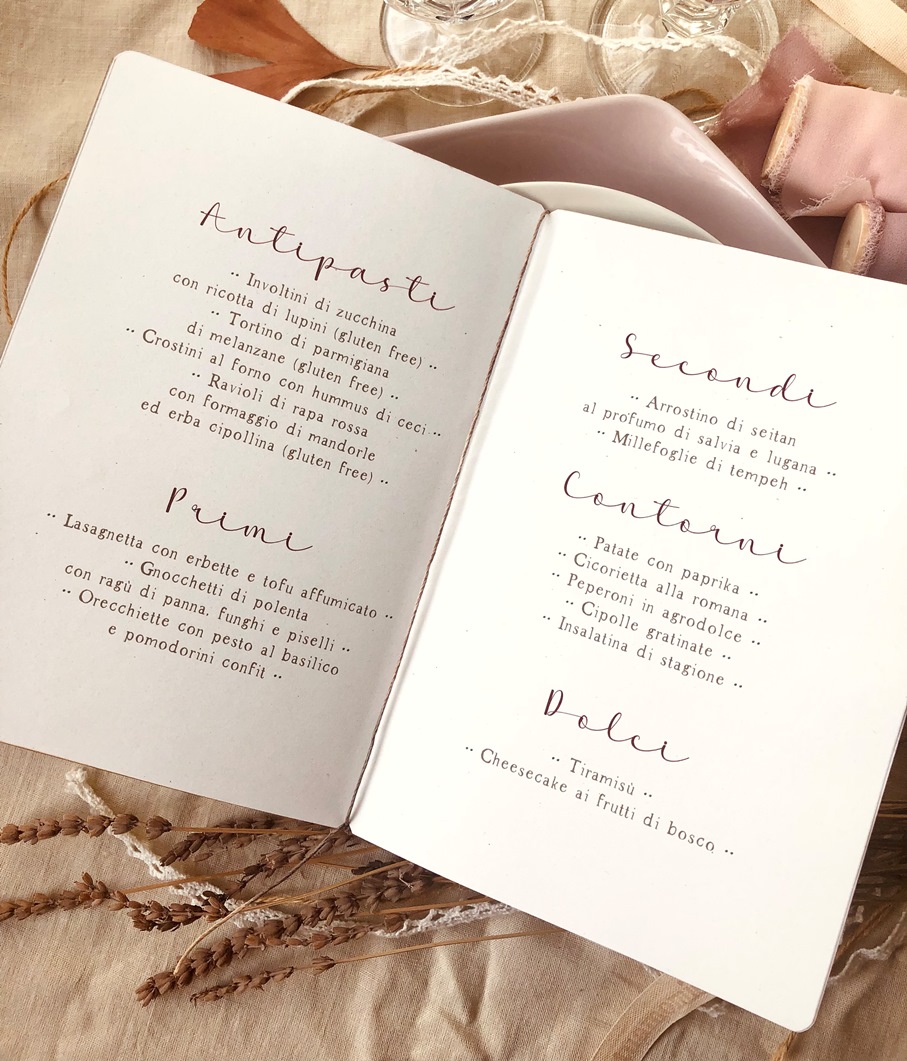 Antipasti
·· Involtini di zucchina
con ricotta di lupini (gluten free) ··
·· Tortino di parmigiana
di melanzane (gluten free) ··
·· Crostini al forno con hummus di ceci ··
·· Ravioli di rapa rossa
con formaggio di mandorle
ed erba cipollina (gluten free) ··
Primi
·· Lasagnetta con erbette e tofu affumicato ··
·· Gnocchetti di polenta
con ragù di panna, funghi e piselli ··
·· Orecchiette con pesto al basilico
e pomodorini confit ··
Secondi
·· Arrostino di seitan
al profumo di salvia e lugana ··
·· Millefoglie di tempeh ··
Contorni
·· Patate con paprika ··
·· Cicorietta alla romana ··
·· Peperoni in agrodolce ··
·· Cipolle gratinate ··
·· Insalatina di stagione ··
Dolci
·· Tiramisù ··
·· Cheesecake ai frutti di bosco ··